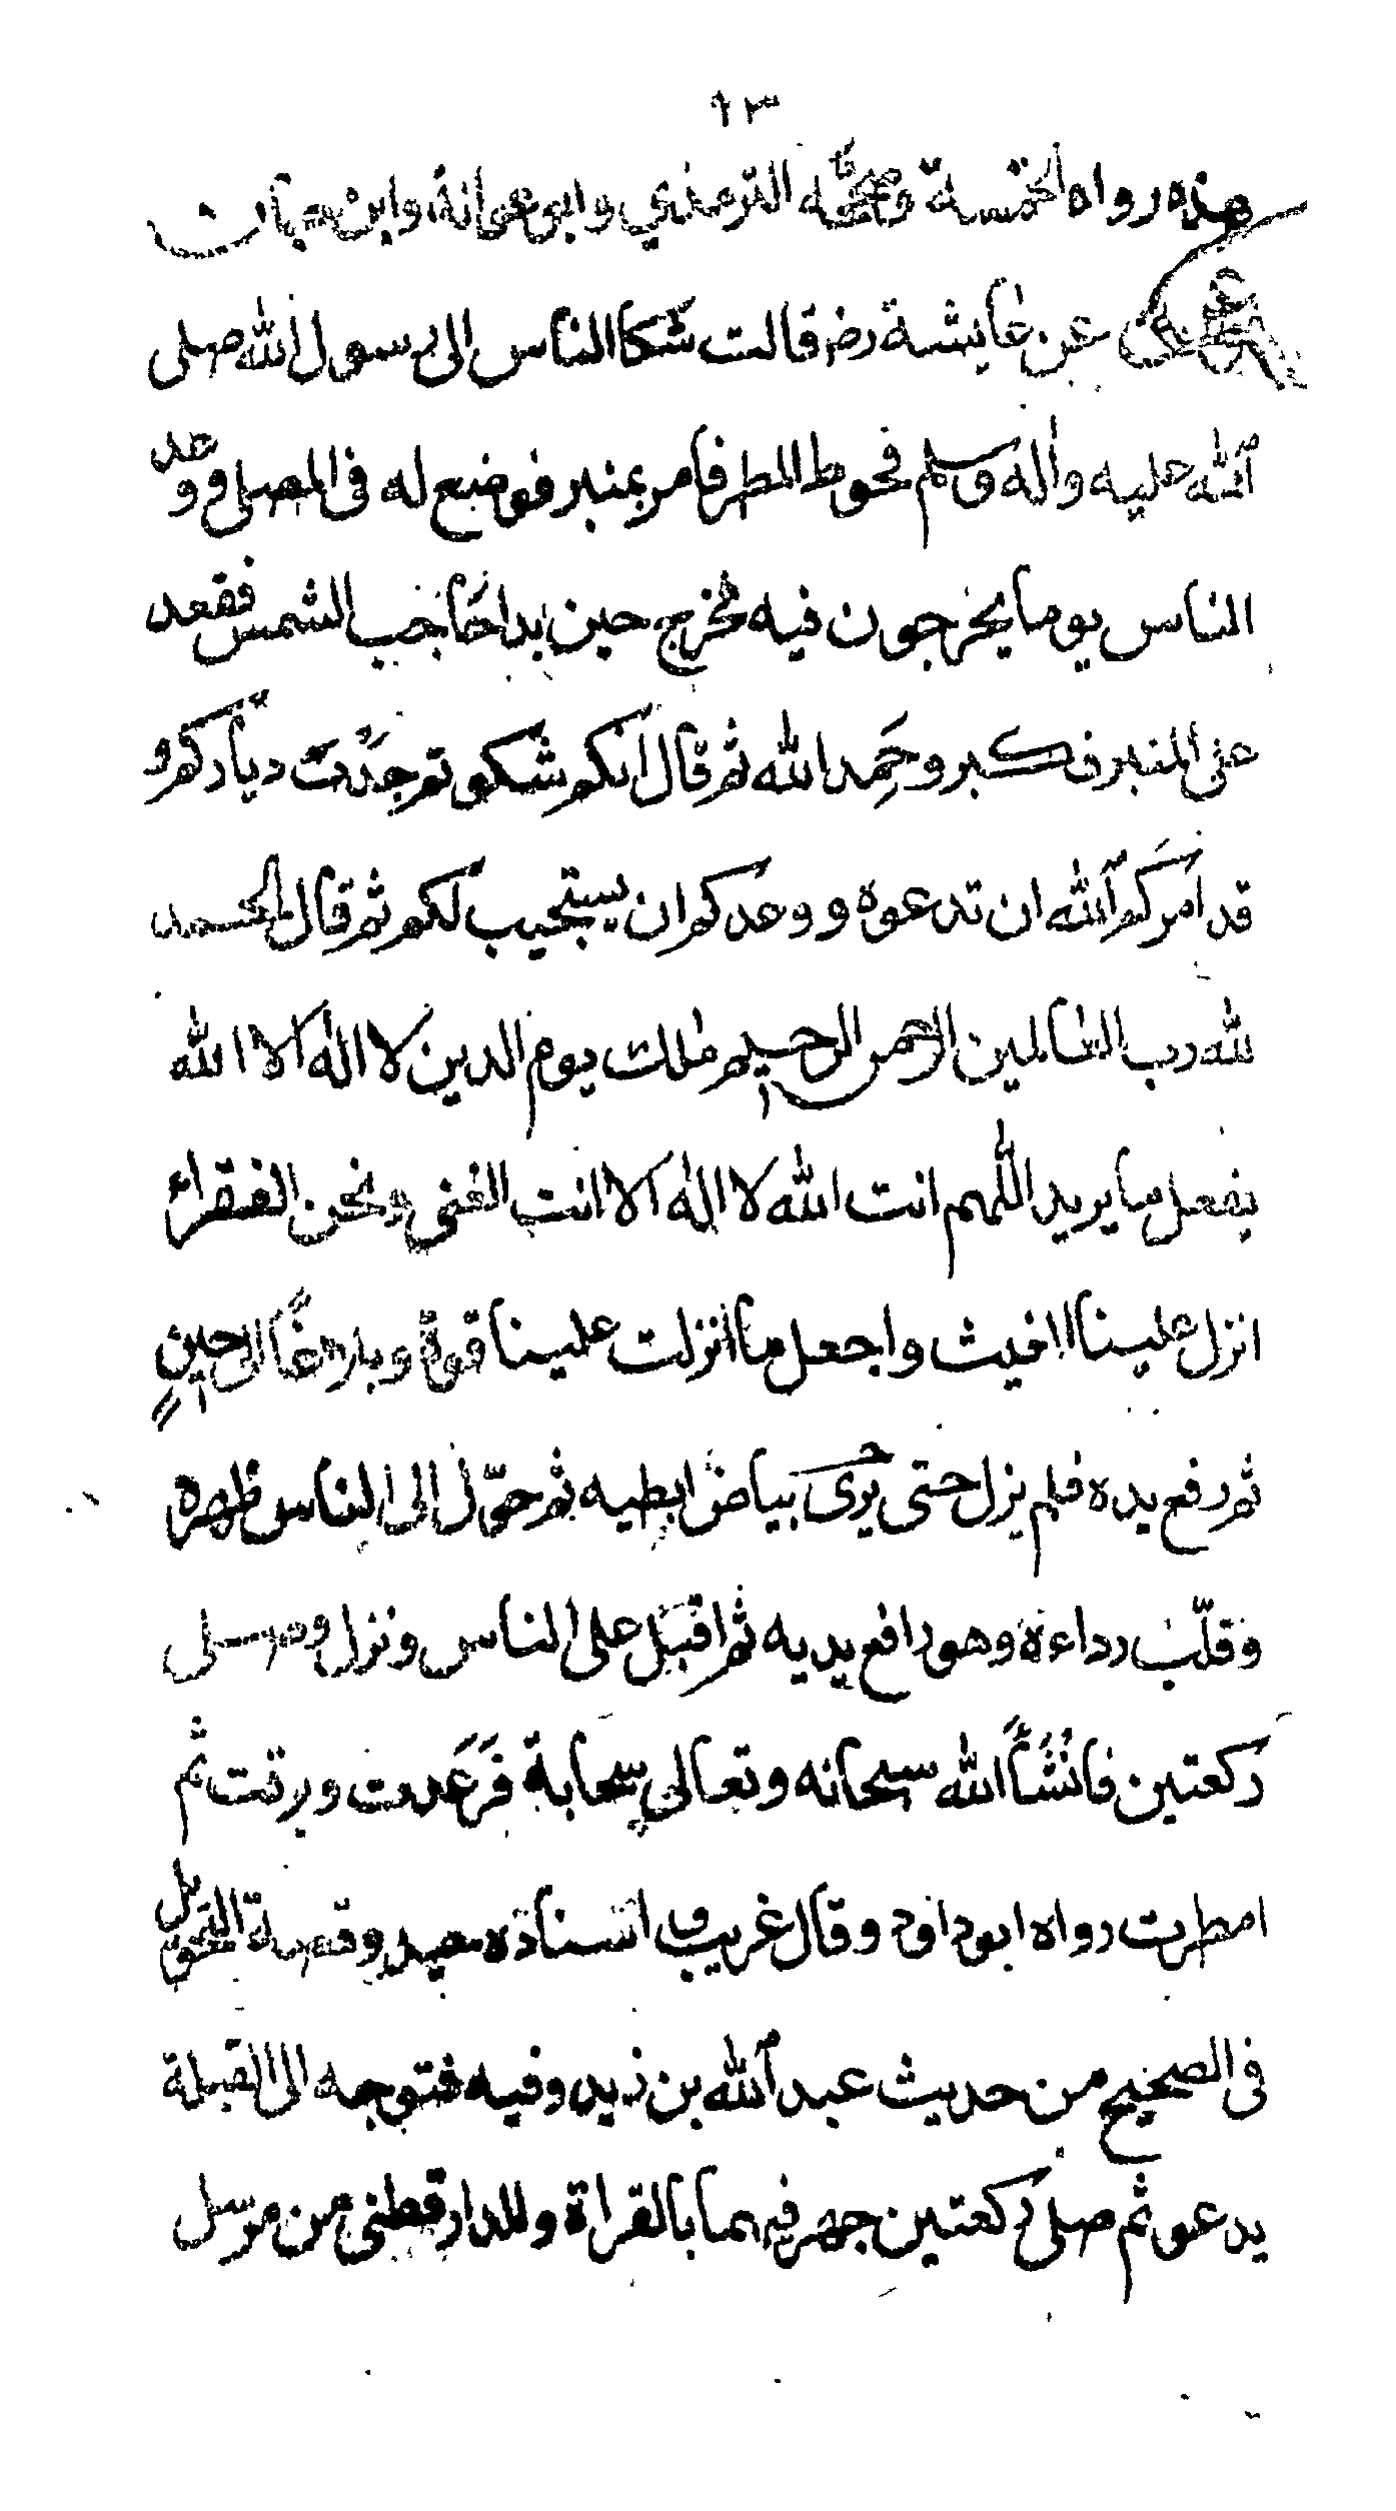 ٩٣
هذه رواه الخمسة وصححه الترمذي وابو عوانة وابن حبان
عن عايشة رض قالت شكا الناس الى رسول الله صلى
الله عليه واله وسلم قحوط المطر فامر بمنبر فوضع له فى المصلى ووعد
الناس يوما يخرجون فيه فخرج حين بدا حاجب الشمس فقعد
على المنبر فكبر وحَمِد الله ثم قال انكم شكوتم جدبت دياركم و
قد امَركم الله ان تدعوه ووعدكم ان يستجيب لكم ثم قال الحمد
لله رب العالمين الرحمن الرحيم ملك يوم الدين لا اله الا الله
يفعل ما يريد اللهم انت الله لا اله الا انت الغنى ونحن الفقراء
انزل علينا الغيث واجعل ما انزلت علينا قوة وبلاغًا الى حينٍ
ثم رفع يده فلم يزل حتى يرى بياض ابطيه ثم حوّل الى الناس ظهره
وقلّب رداءه وهو رافع يديه ثم اقبل على الناس ونزل وصلى
ركعتين فانْشَأَ الله سبحانه وتعالى سحابة فرَعَدت وبرقت ثم
امطرت رواه ابو داود وقال غريب واسناده جيد وقصة التحويل
فى الصحيح من حديث عبد الله بن زيد وفيه فتوجه الى القبلة
يدعو ثم صلى ركعتين جهر فيهما بالقراة وللدارقطنى من مرسل